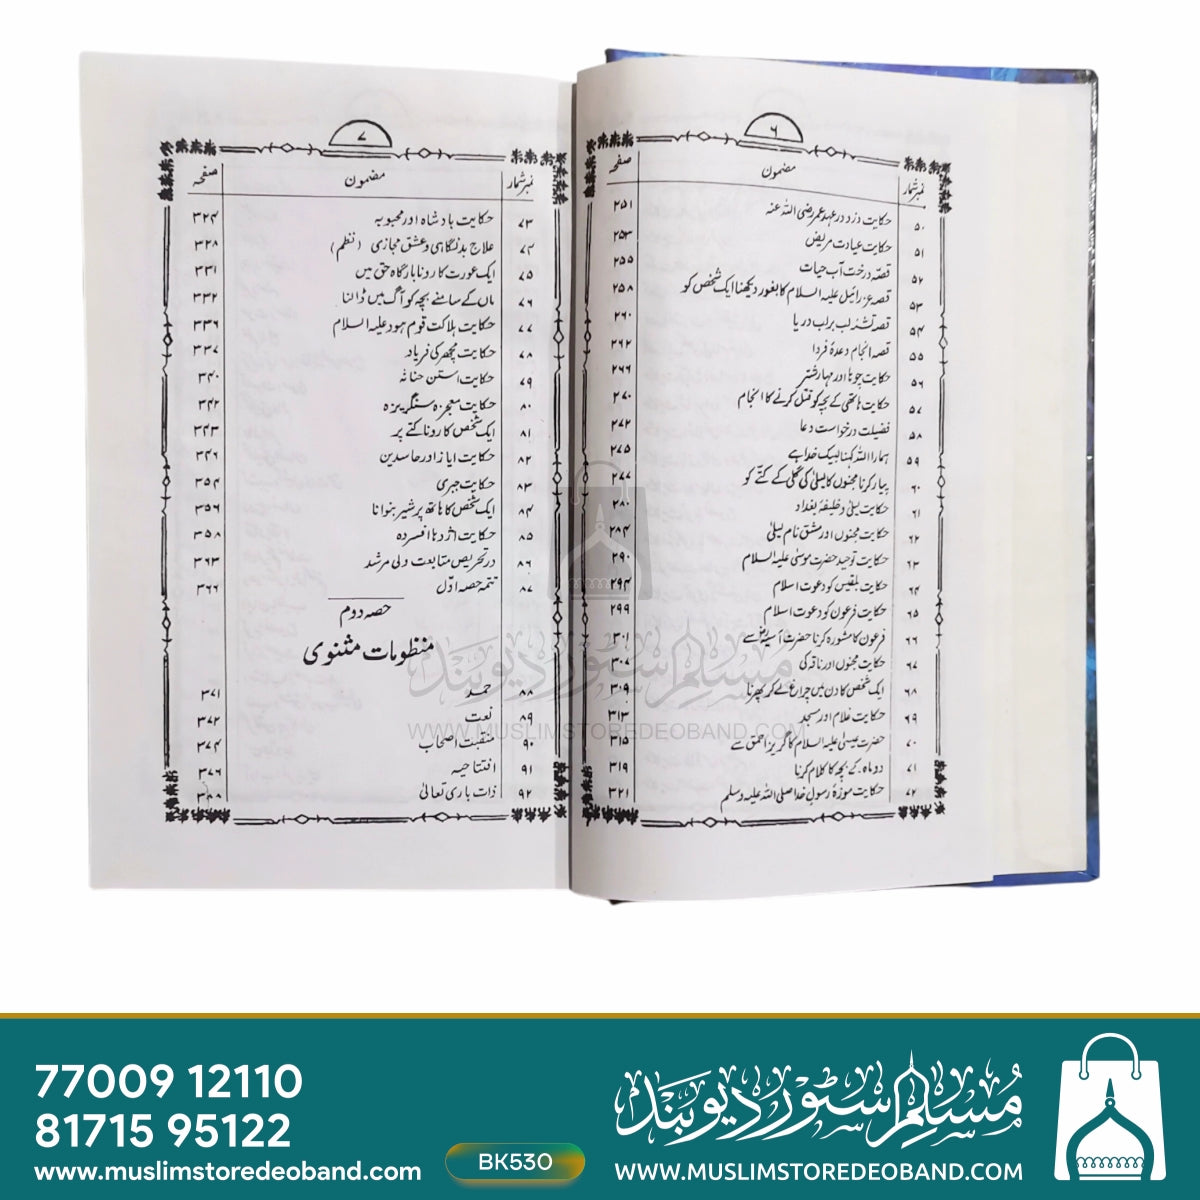 ۶
نمبر شمار مضمون صفحہ
۵۰ حکایت دزد در عہد عمر رضی اللہ عنہ ۲۵۱
۵۱ حکایت عیادت مریض ۲۵۳
۵۲ قصہ درخت آب حیات ۲۵۵
۵۳ قصہ عزرائیل علیہ السلام کا بغور دیکھنا ایک شخص کو ۲۵۸
۵۴ قصہ تشنہ لب بر لب دریا ۲۶۰
۵۵ قصہ انجام وعدۂ فردا ۲۶۲
۵۶ حکایت چوہا اور مہار شتر ۲۶۶
۵۷ حکایت ہاتھی کے بچہ کو قتل کرنے کا انجام ۲۷۰
۵۸ فضیلت درخواست دعا ۲۷۲
۵۹ ہمارا اللہ کہنا لبیک خدا ہے ۲۷۵
۶۰ پیار کرنا مجنوں کا لیلیٰ کی گلی کے کتے کو ۲۷۷
۶۱ حکایت لیلیٰ و خلیفۂ بغداد ۲۸۰
۶۲ حکایت مجنوں اور مشق نام لیلیٰ ۲۸۴
۶۳ حکایت توحید حضرت موسیٰ علیہ السلام ۲۹۰
۶۴ حکایت بلقیس کو دعوت اسلام ۲۹۴
۶۵ حکایت فرعون کو دعوت اسلام ۲۹۹
۶۶ فرعون کا مشورہ کرنا حضرت آسیہؓ سے ۳۰۱
۶۷ حکایت مجنوں اور ناقہ کی ۳۰۷
۶۸ ایک شخص کا دن میں چراغ لے کر پھرنا ۳۰۹
۶۹ حکایت غلام اور مسجد ۳۱۳
۷۰ حضرت عیسیٰ علیہ السلام کا گریز احمق سے ۳۱۵
۷۱ دو ماہ کے بچہ کا کلام کرنا ۳۱۹
۷۲ حکایت موزۂ رسول خدا صلی اللہ علیہ وسلم ۳۲۱
۷
نمبر شمار مضمون صفحہ
۷۳ حکایت بادشاہ اور محبوبہ ۳۲۴
۷۴ علاج بدنگاہی و عشق مجازی (نظم) ۳۲۸
۷۵ ایک عورت کا رونا بارگاہ حق میں ۳۳۱
۷۶ ماں کے سامنے بچہ کو آگ میں ڈالنا ۳۳۲
۷۷ حکایت ہلاکت قوم ہود علیہ السلام ۳۳۶
۷۸ حکایت مچھر کی فریاد ۳۳۷
۷۹ حکایت استن حنانہ ۳۴۰
۸۰ حکایت معجزہ سنگریزہ ۳۴۲
۸۱ ایک شخص کا رونا کتے پر ۳۴۳
۸۲ حکایت ایاز اور حاسدین ۳۴۶
۸۳ حکایت جبری ۳۵۴
۸۴ ایک شخص کا ہاتھ پر شیر بنوانا ۳۵۶
۸۵ حکایت اژدہا افسردہ ۳۵۸
۸۶ در تحریص متابعت ولی مرشد ۳۶۳
۸۷ تتمہ حصہ اوّل ۳۶۶
حصہ دوم
منظومات مثنوی
۸۸ حمد ۳۷۱
۸۹ نعت ۳۷۲
۹۰ منقبت اصحاب ۳۷۴
۹۱ افتتاحیہ ۳۷۶
۹۲ ذات باری تعالیٰ
مسلم سٹور دیوبند
WWW.MUSLIMSTOREDEOBAND.COM
77009 12110
81715 95122
www.muslimstoredeoband.com
BK530
مسلم سٹور دیوبند
WWW.MUSLIMSTOREDEOBAND.COM